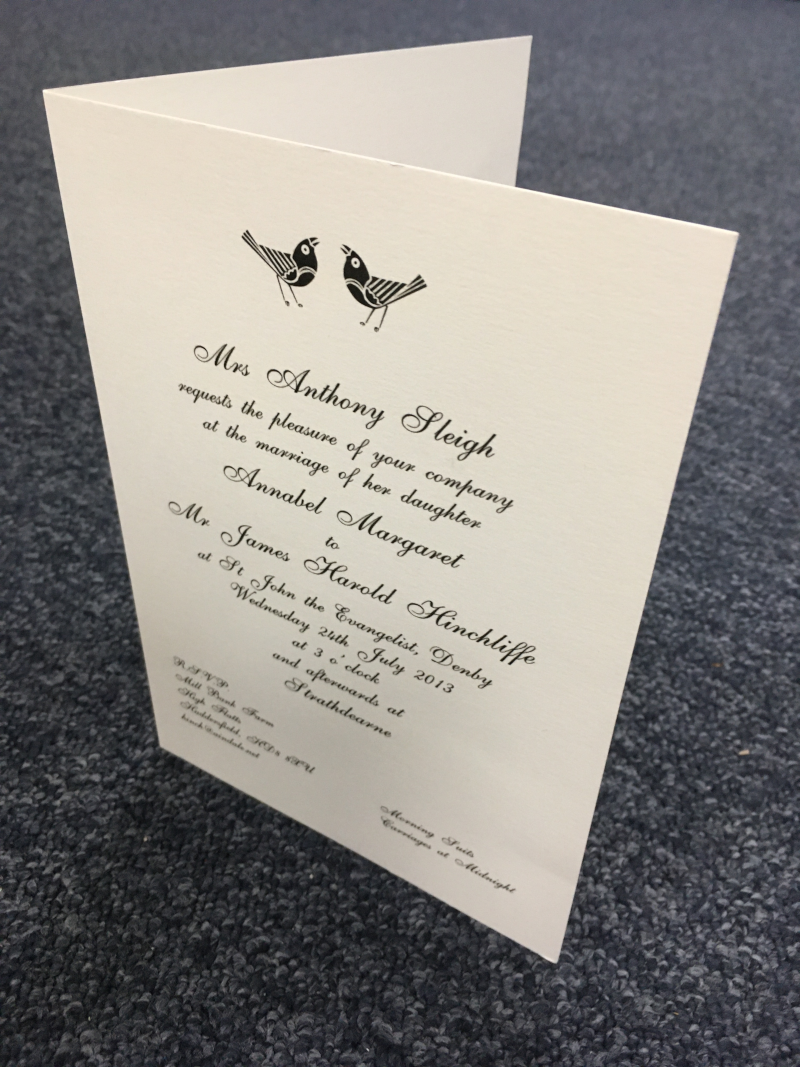 Mrs Anthony Sleigh
requests the pleasure of your company
at the marriage of her daughter
Annabel Margaret
to
Mr James Harold Hinchliffe
at St John the Evangelist, Denby
Wednesday 24th July 2013
at 3 o'clock
and afterwards at
Strathdearne
R.S.V.P
Mill Bank Farm
High Flatts
Huddersfield, HD8
Morning Suits
Carriages at Midnight